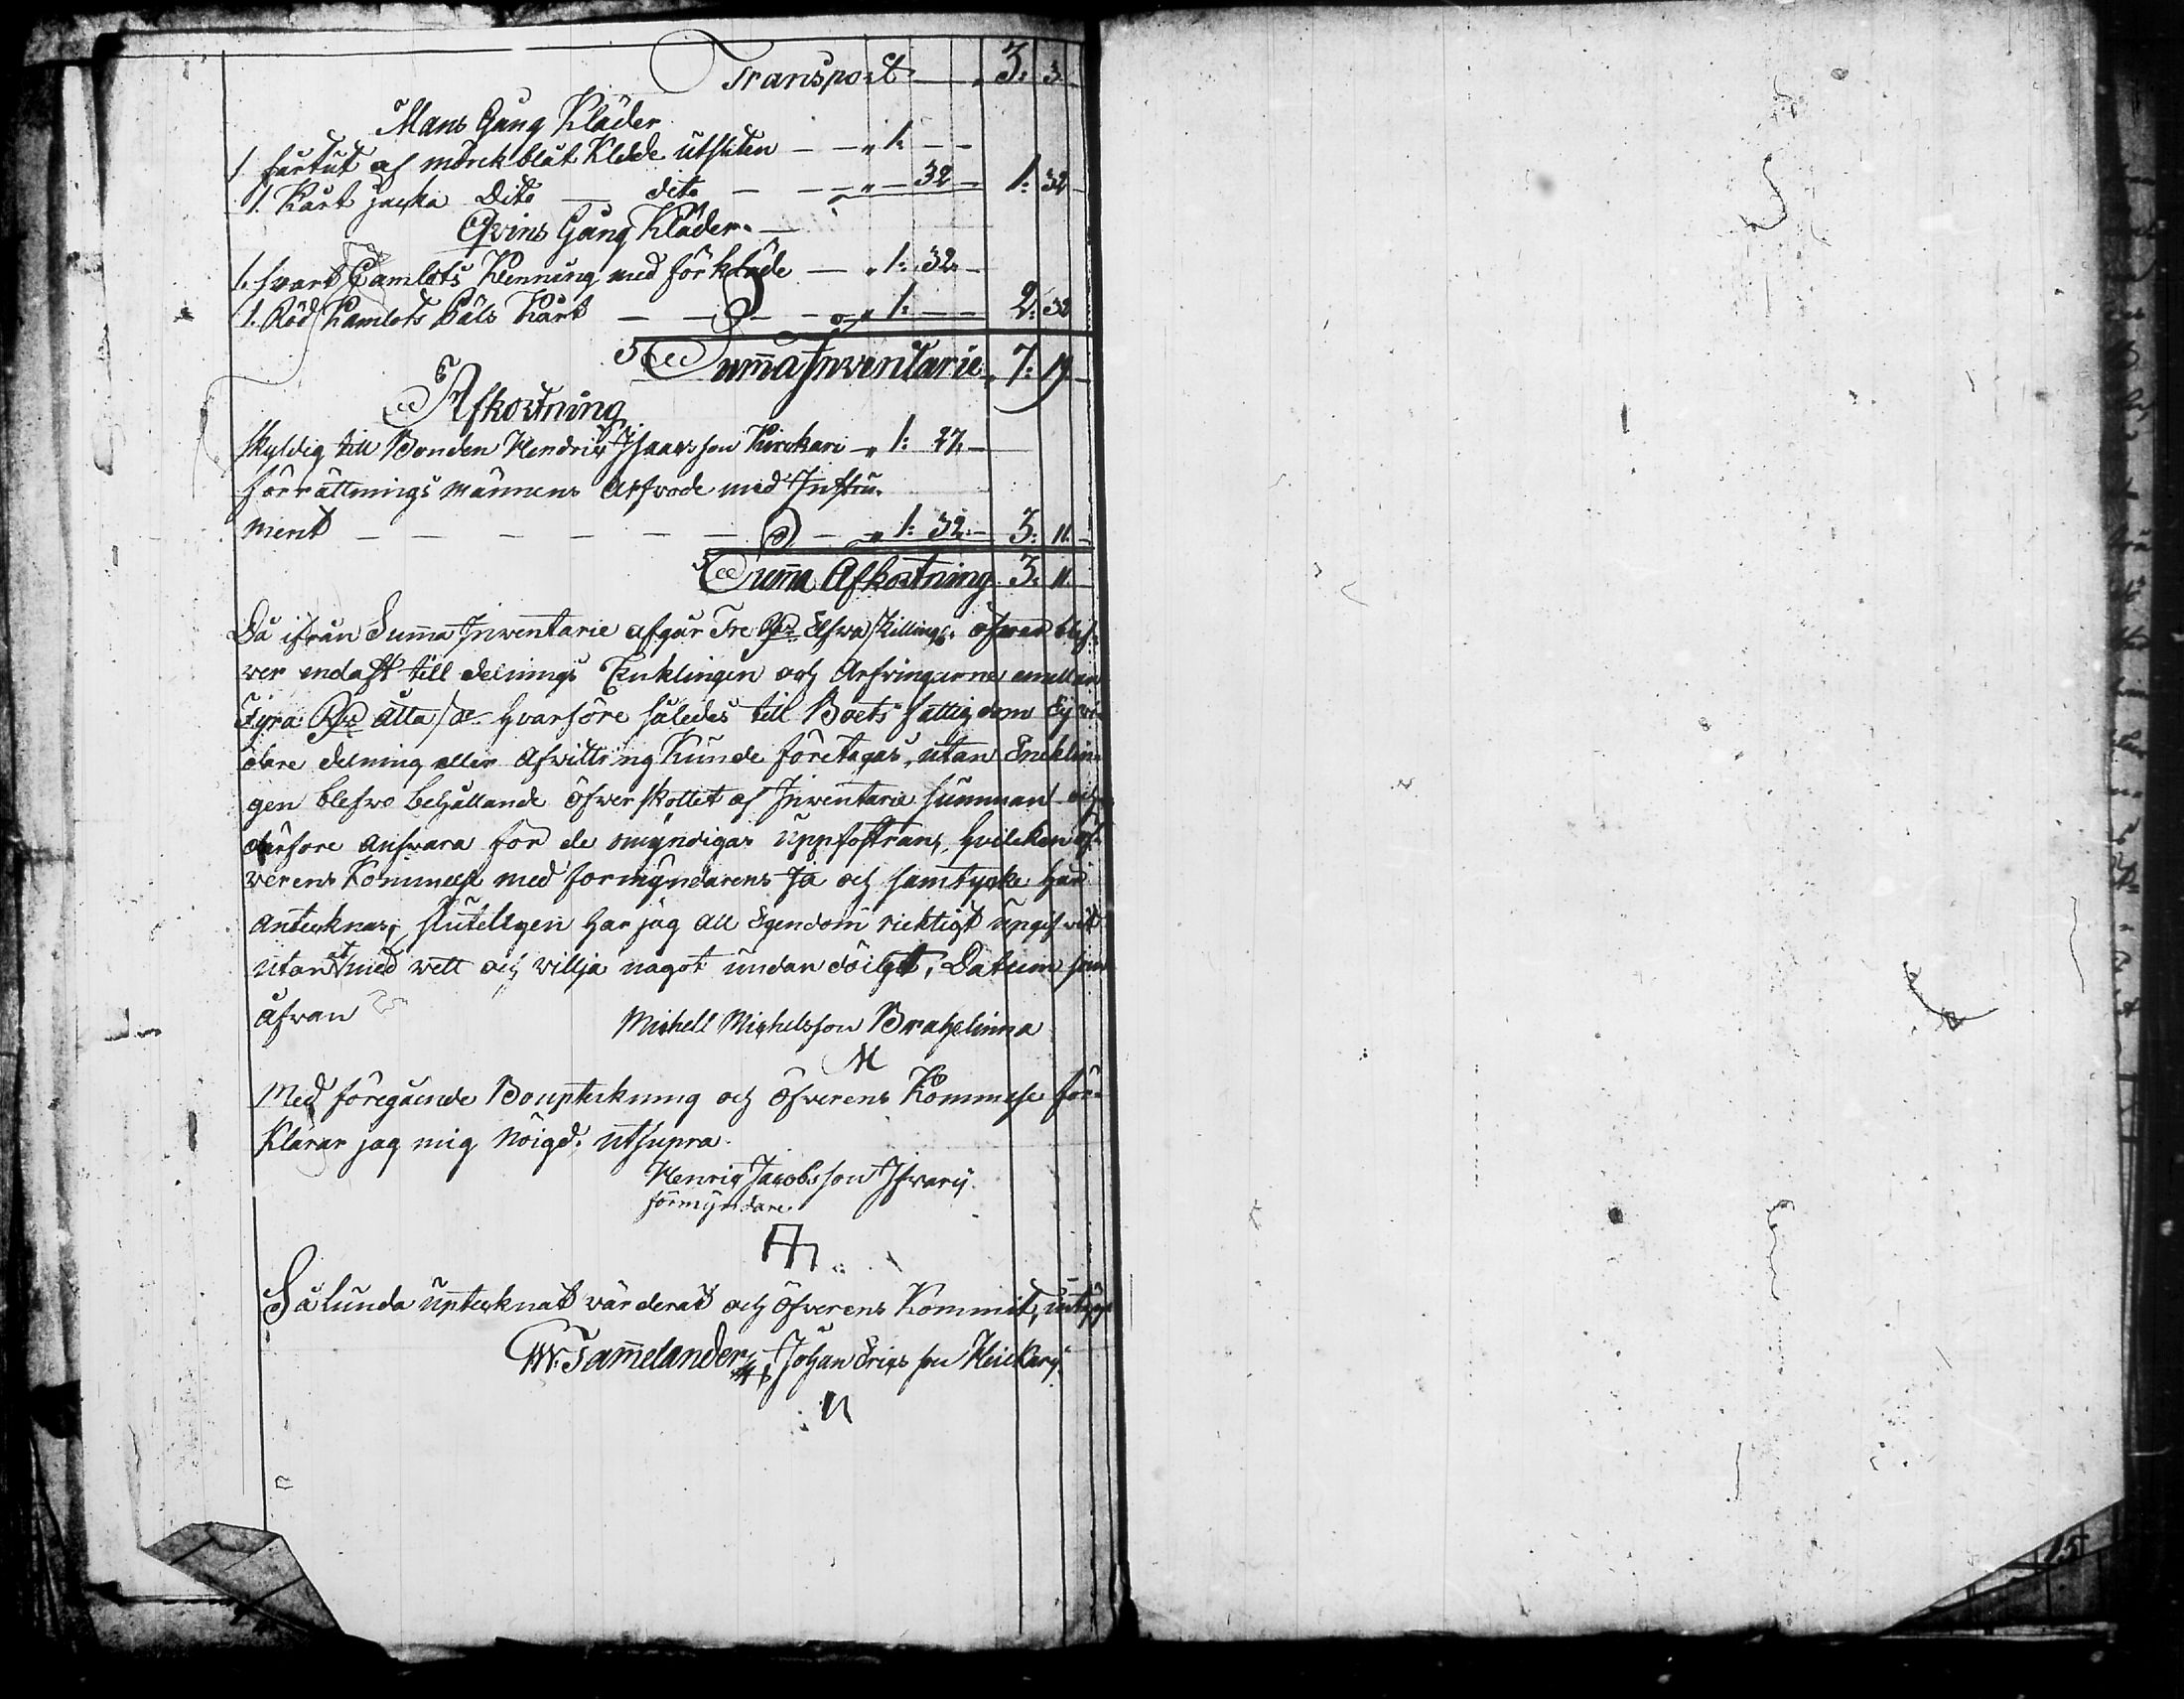 Transport — 3: 3.
Mans Gång Kläder
1 surtut af mörck blåt Kläde utsliten — — „ 1: — —
1. Kårt jacka Dito — dito — — — „ — 32 — 1: 32 —
Qvins Gång Kläder. —
1. svart Camlots Klenning med förkläde — „ 1: 32. —
1. Röd Kamlots Päls Kårt — — — — „ 1: — — 2: 32
Summa Inventarie „ 7: 19. —
Afkortning
Skyldig till Bonden Hendrix Isaacsson — „ 1: 27. —
förrättnings männens Arfvode med Instru-
ment — — — — — — — „ 1: 32. — 3: 11. —
Summa Afkortning 3: 11.
Då ifrån Summa Inventarie afgår Tre Rd Elfwa skillings. öfwer blef-
ver endast till delnings Enklingen och Arfvingarne emellan
Fyra Rd åtta sk hvarföre således till Boets fattigdom Ej vi-
dare delning eller Afwittring Kunde företagas, utan Encklin-
gen blefwo behållande öfwerskottet af Inwentarie summan och
därfore answara för de omyndigas uppfostran, hvilcken öf-
verens Kommelse med formyndarens Ja och samtycke här
antecknas; sluteligen har jag all Egendom ricktigt upgifvit
utan at med vett och villja något undandöilgt, Datum som
åfvan
Michell Michelsson Brahelinna
M
Med föregående Boupteckning och öfverens Kommelse för-
Klarar jag mig nöigd. ut supra.
Henrix Jacobsson
förmyndare.
Sålunda upteknat värderat och öfverens Kommit, intyga
W. Tammelander Johan Erixsson